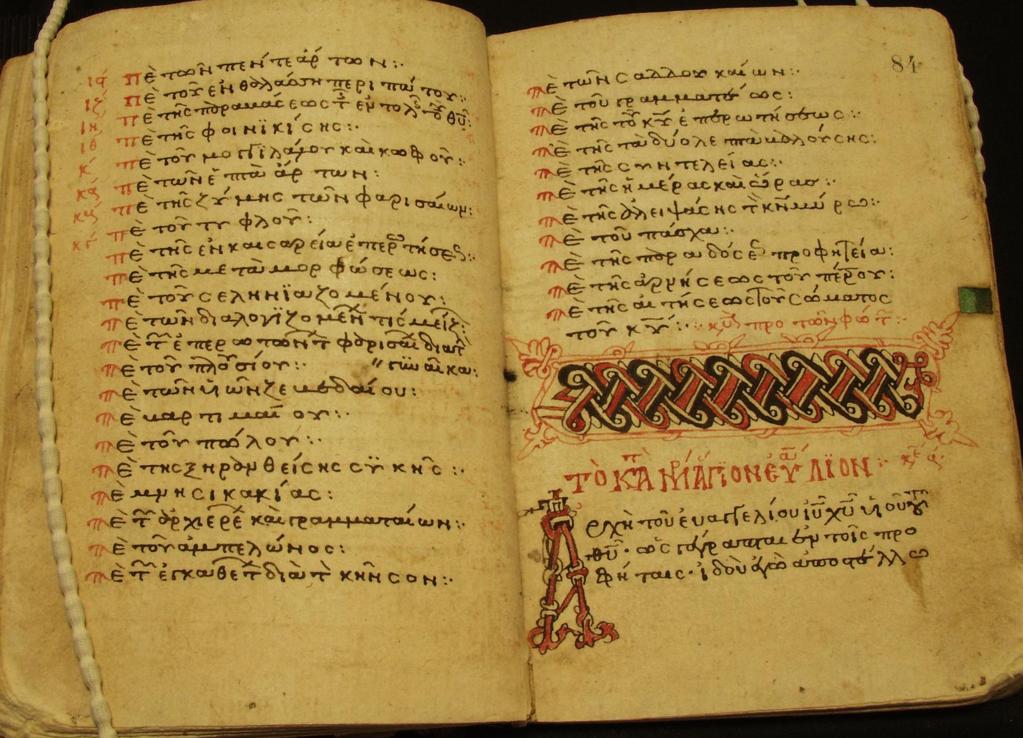 ις Περ τῶν πέντε άρτων:·
ιζ Περ τοῦ ἐν θαλάσση περιπάτου:·
ιη Περ τῆς παραβάσεως τ ἐντολ τοῦ θῦ:·
ιθ Περ τῆς φοινικίσης:·
κ Περ τοῦ μογγιλάλου καὶ κωφοῦ:·
κα Περ τῶν ἑπτὰ άρτων:
κβ Περ τῆς ζύμης τῶν φαρισαίων:
κγ Περ τοῦ τυφλοῦ:
Περ τῆς ἐν καισαρεία ἐπερτήσε:·
Περ τῆς μεταμορφώσεως:
Περ τοῦ σεληνιαζομένου:
Περ τῶν διαλογιζομέν τίς μείζ:
Περ τ ἐπερωτών τ φαρισαί
Περ τοῦ πλουσίου:·
Περ τῶν υἱῶν ζεβεδαίου:
Περ βαρτιμαίου:·
Περ τοῦ πώλου:·
Περ τῆς ξηρανθείσης συκῆς:·
Περ μνησικακίας:
Περ τ ἀρχιερέ καὶ γραμματαίων:
Περ τοῦ ἀμπελῶνος:
Περ τ ἐγκαθετ διὰ τ κῆνσον:·
84
Περ τῶν σαδδουκαίων:·
Περ τοῦ γραμματέως:
Περ τῆς τοῦ κυ ἐπερωτήσεως:·
Περ τῆς τὰ δύο λεπτὰ βαλούσης:
Περ τῆς συντελείας:
Περ τῆς ἡμέρας καὶ ὥρας:·
Περ τῆς ἀλειψάσης τ κν μύρω:·
Περ τοῦ πάσχα:·
Περ τῆς παραδόσε προφητεία:
Περ τῆς ἀρνήσεως τοῦ πέτρου:
Περ τῆς αἰτήσεως τοῦ σώματος
τοῦ κυ:· πρὸ τῶν φώτ:·
ΤΟ ΚΑΤ ΜΑΡ ΑΓΙΟΝ ΕΥΑΓΓΛΙΟΝ
Αρχὴ τοῦ ευαγγελίου ιυ χυ υἱοῦ τ
θυ· ὡς γέγραπται ἐν τοῖς προ
φήταις· ἰδοὺ ἐγὼ ἀποστέλλω